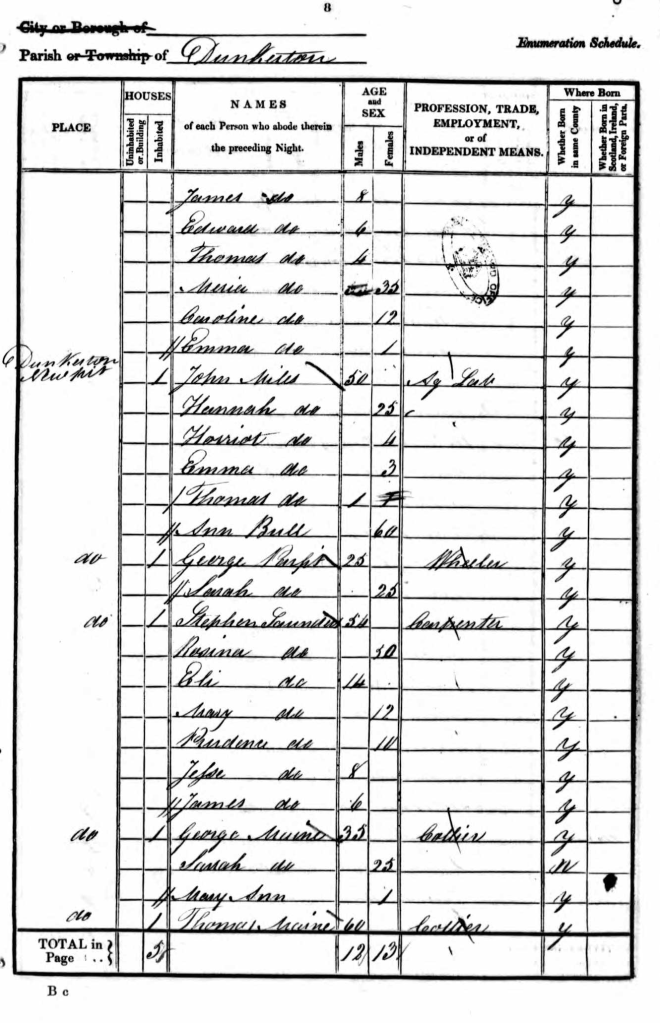 8
City or Borough of
Parish or Township of Dunkerton
Enumeration Schedule.
PLACE
HOUSES
Uninhabited or Building
Inhabited
NAMES
of each Person who abode therein
the preceding Night.
AGE
and
SEX
Males
Females
PROFESSION, TRADE,
EMPLOYMENT,
or of
INDEPENDENT MEANS.
Where Born
Whether Born in same County
Whether Born in Scotland, Ireland, or Foreign Parts.
James do 8 y
Edward do 6 y
Thomas do 4 y
Meria do 35 y
Caroline do 12 y
Emma do 1 y
Dunkerton
1 John Miles 50 Ag Lab y
Hannah do 25 y
Harriot do 4 y
Emma do 3 y
Thomas do 1 y
Ann Bull 60 y
do 1 George 25 Wheeler y
Sarah do 25 y
do 1 Stephen Saunders 54 Carpenter y
Rosina do 50 y
Eli do 14 y
Mary do 12 y
Prudence do 10 y
Jesse do 8 y
James do 6 y
do 1 George Maine 35 Collier y
Sarah do 25 N
Mary Ann 1 y
do 1 Thomas Maine 60 Collier y
TOTAL in Page 5 12 13
B c